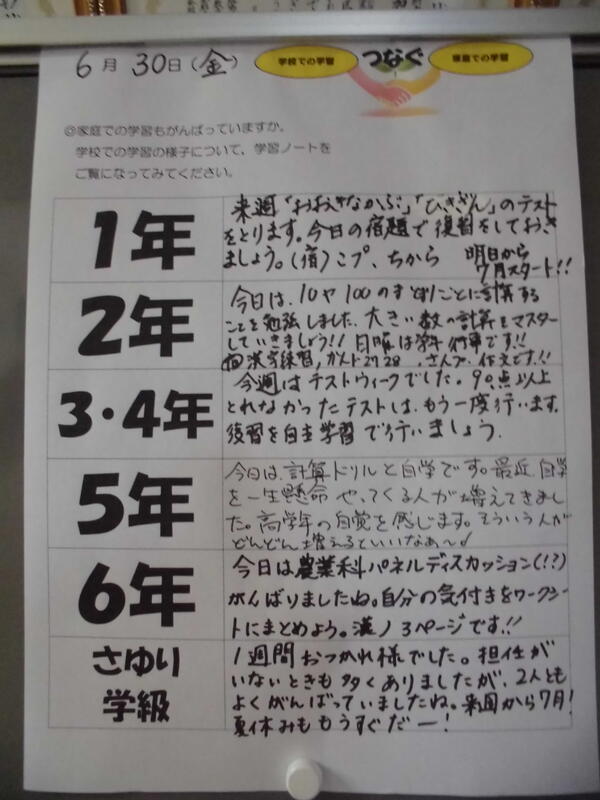 6月30日(金)
学校での学習 つなぐ 家庭での学習
◎家庭での学習もがんばっていますか。
学校での学習の様子について、学習ノートを
ご覧になってみてください。
1年
来週「おおきなかぶ」「ひきざん」のテスト
をとります。今日の宿題で復習をしておき
ましょう。(宿)こプ、ちから 明日から
7月スタート!!
2年
今日は、10や100のまとまりごとに計算する
ことを勉強しました。大きい数の計算をマスター
していきましょう!! 日曜は学年行事です!!
漢字練習,かんド27 28 ,さんプ,作文です!!
3・4年
今週はテストウィークでした。90点以上
とれなかったテストは、もう一度行います。
復習を自主学習で行いましょう。
5年
今日は、計算ドリルと自学です。最近、自学
を一生懸命やってくる人が増えてきまし
た。高学年の自覚を感じます。そういう人が
どんどん増えるといいなあ〜♪
6年
今日は農業科パネルディスカッション(!?)
がんばりましたね。自分の気付きをワークシー
トにまとめよう。漢ノ3ページです!!
さゆり
学級
1週間おつかれ様でした。担任が
いないときも多くありましたが、2人とも
よくがんばっていましたね。来週から7月!
夏休みももうすぐだー!